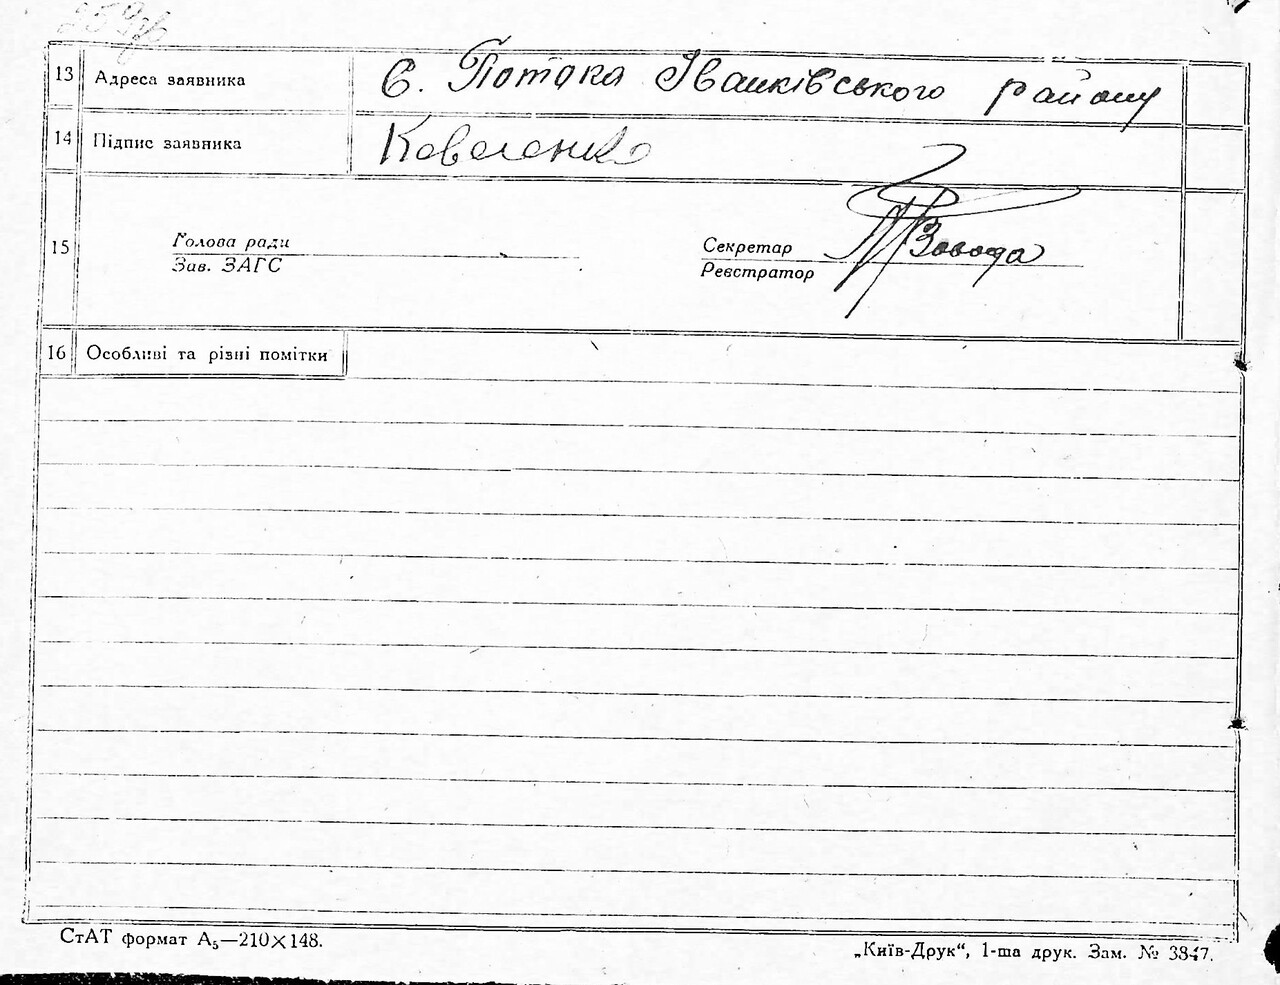 13 Адреса заявника с. Потоки Іванківського району
14 Підпис заявника Коваленко
15 Голова ради
Зав. ЗАГС
Секретар
Реєстратор
16 Особливі та різні помітки
СтАТ формат А₅—210×148.
„Київ-Друк“, 1-ша друк. Зам. № 3847.